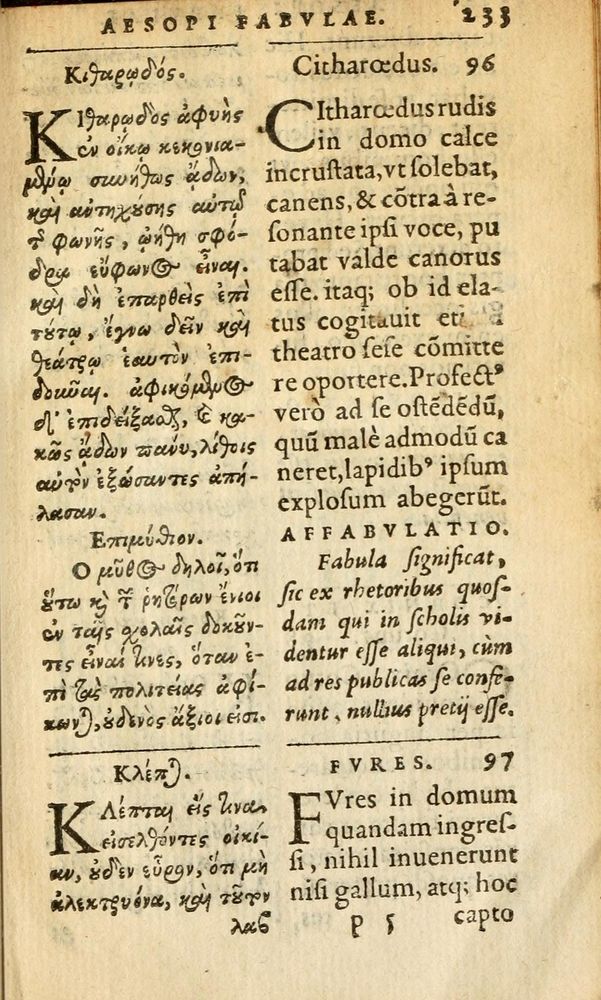 AESOPI FABVLAE. 233
Κιθαρῳδός.
Κιθαρῳδὸς ἀφυὴς
ἐν οἴκῳ κεκονια-
μένῳ συνήθως ᾄδων,
καὶ αὐτηχούσης αὐτῷ
τῆς φωνῆς, ᾠήθη σφό-
δρα εὔφωνος εἶναι.
καὶ δὴ ἐπαρθεὶς ἐπὶ
τούτῳ, ἔγνω δεῖν καὶ
θεάτρῳ ἑαυτὸν ἐπι-
δοῦναι. ἀφικόμενος
δ' ἐπιδείξασθαι, καὶ κα-
κῶς ᾄδων πάνυ, λίθοις
αὐτὸν ἐξώσαντες ἀπή-
λασαν.
Ἐπιμύθιον.
Ο μῦθος δηλοῖ, ὅτι
οὕτω καὶ τῶν ῥητόρων ἔνιοι
ἐν ταῖς σχολαῖς δοκοῦν-
τες εἶναί τινες, ὅταν ἐ-
πὶ τὰς πολιτείας ἀφί-
κωνται, οὐδενὸς ἄξιοι εἰσι.
Κλέπται.
Κλέπται εἴς τινα
εἰσελθόντες οἰκί-
αν, οὐδὲν εὗρον, ὅτι μὴ
ἀλεκτρυόνα, καὶ τοῦτον
λαβ
Citharœdus. 96
CItharœdus rudis
in domo calce
incrustata, vt solebat,
canens, & cõtra à re-
sonante ipsi voce, pu
tabat valde canorus
esse. itaq; ob id ela-
tus cogitauit eti
theatro sese cõmitte
re oportere. Profectꝰ
verò ad se ostẽdẽdũ,
quũ malè admodũ ca
neret, lapidibꝰ ipsum
explosum abegerũt.
AFFABVLATIO.
Fabula significat,
sic ex rhetoribus quos-
dam qui in scholis vi-
dentur esse aliqui, cùm
ad res publicas se confe-
runt, nullius pretij esse.
FVRES. 97
FVres in domum
quandam ingres-
si, nihil inuenerunt
nisi gallum, atq; hoc
P 5 capto